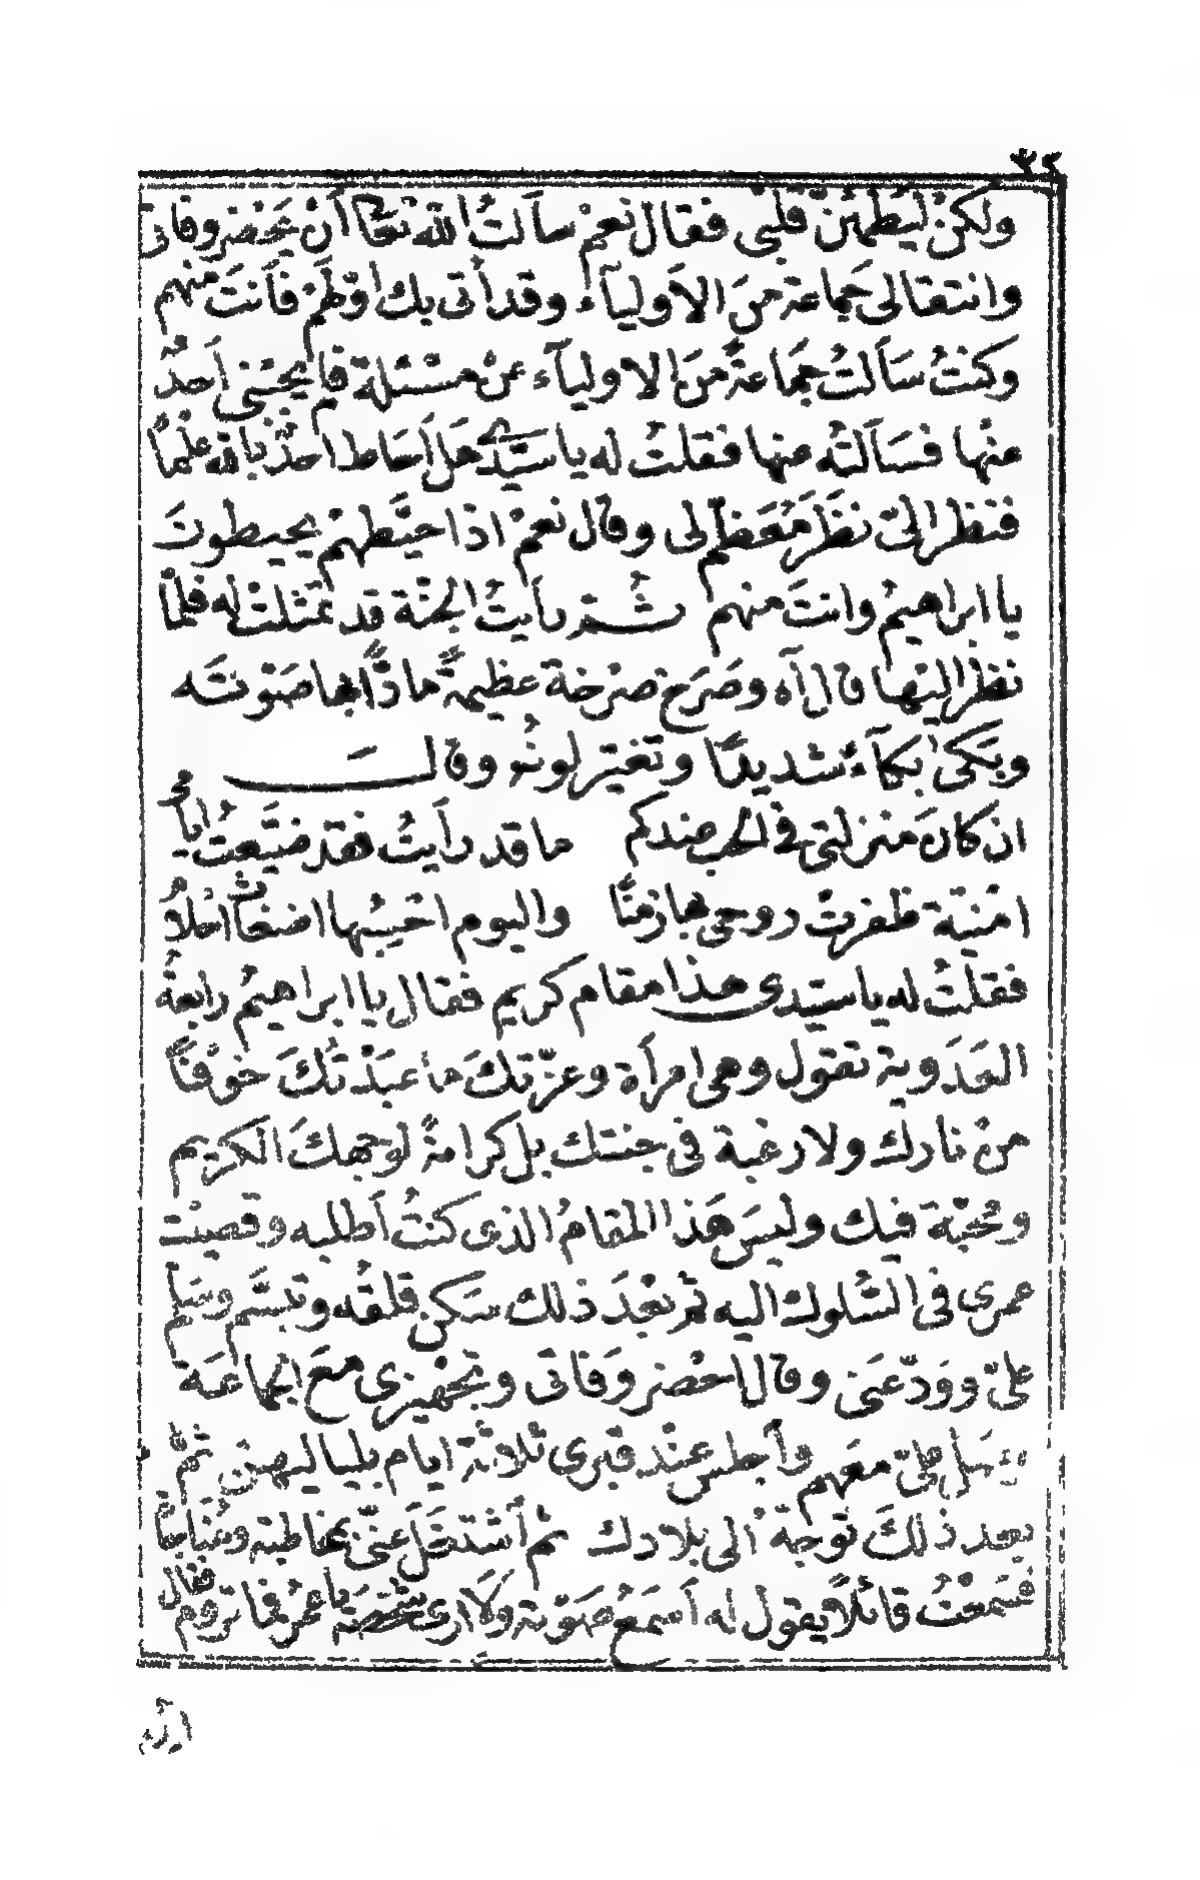 ٣٤
ولكن ليطمئن قلبى فقال نعم سألتُ الله تعا أنْ يحضر وفاتى
وانتقالى جماعة منَ الاولياء وقد أتى بك اوّلهمْ فأنتَ منهم
وكنتُ سَألتُ جمَاعةً منَ الاولياء عنْ مسْئلة فلم يجبنى أحدٌ
منها فسَألتُه منها فقلتُ له ياسيّدى هَل أحَاط احدٌ بالله علمًا
فنظر الىّ نظَرَ مُعَظم لى وقال نعمْ اذا حيّطهمْ يحيطونَ
يا ابراهيمُ وانتَ منهم ثمّ رأيتُ الجنّة قد تمثلتْ له فلمّا
نظر اليْها قال آه وصَرَخ صرْخة عظيمةً مادًّا بها صَوْتَه
وبَكى بكاءً شديدًا وتغيّر لونُه وقالَ
ان كانَ منزلتى فى الحب عندكم ما قد رأيتُ فقد ضيّعتُ ايامى
امنيّة ظفرتْ روحى بها زمنًا واليوم احْسبُها اضغاث احْلامُ
فقلتُ له ياسيّدى هذا مقام كريم فقال يا ابراهيمُ رابعةُ
العَدَوية تقول وهى امرأة وعزّتكَ ما عَبَدْتُكَ خوْفًا
منْ نارك ولا رغبة فى جنتك بل كرامةً لوجهكَ الكريم
ومحبّة فيك وليسَ هَذا المقامُ الذى كنتُ أطلبه وقضيْت
عمرى فى السّلوك اليه ثم بعْدَ ذلك سَكن قلقُه وتبسَّم وسَلم
علىّ ووَدّعَنى وقال احْضر وَفاتى وتجْهيزى معَ الجماعَة
وصَل علىّ معَهم وأجلس عنْد قبْرى ثلاثةَ ايام بلياليهنَ ثمّ
بعد ذلكَ توجّهْ الى بلادك ثم أشتغَلَ عنّى بمخاطبة ومُنَاجاة
فسَمعْتُ قائلًا يقول له أسمَعُ صَوْته ولا ارى شخْصَه يا عُمر فما ترُوم فقال